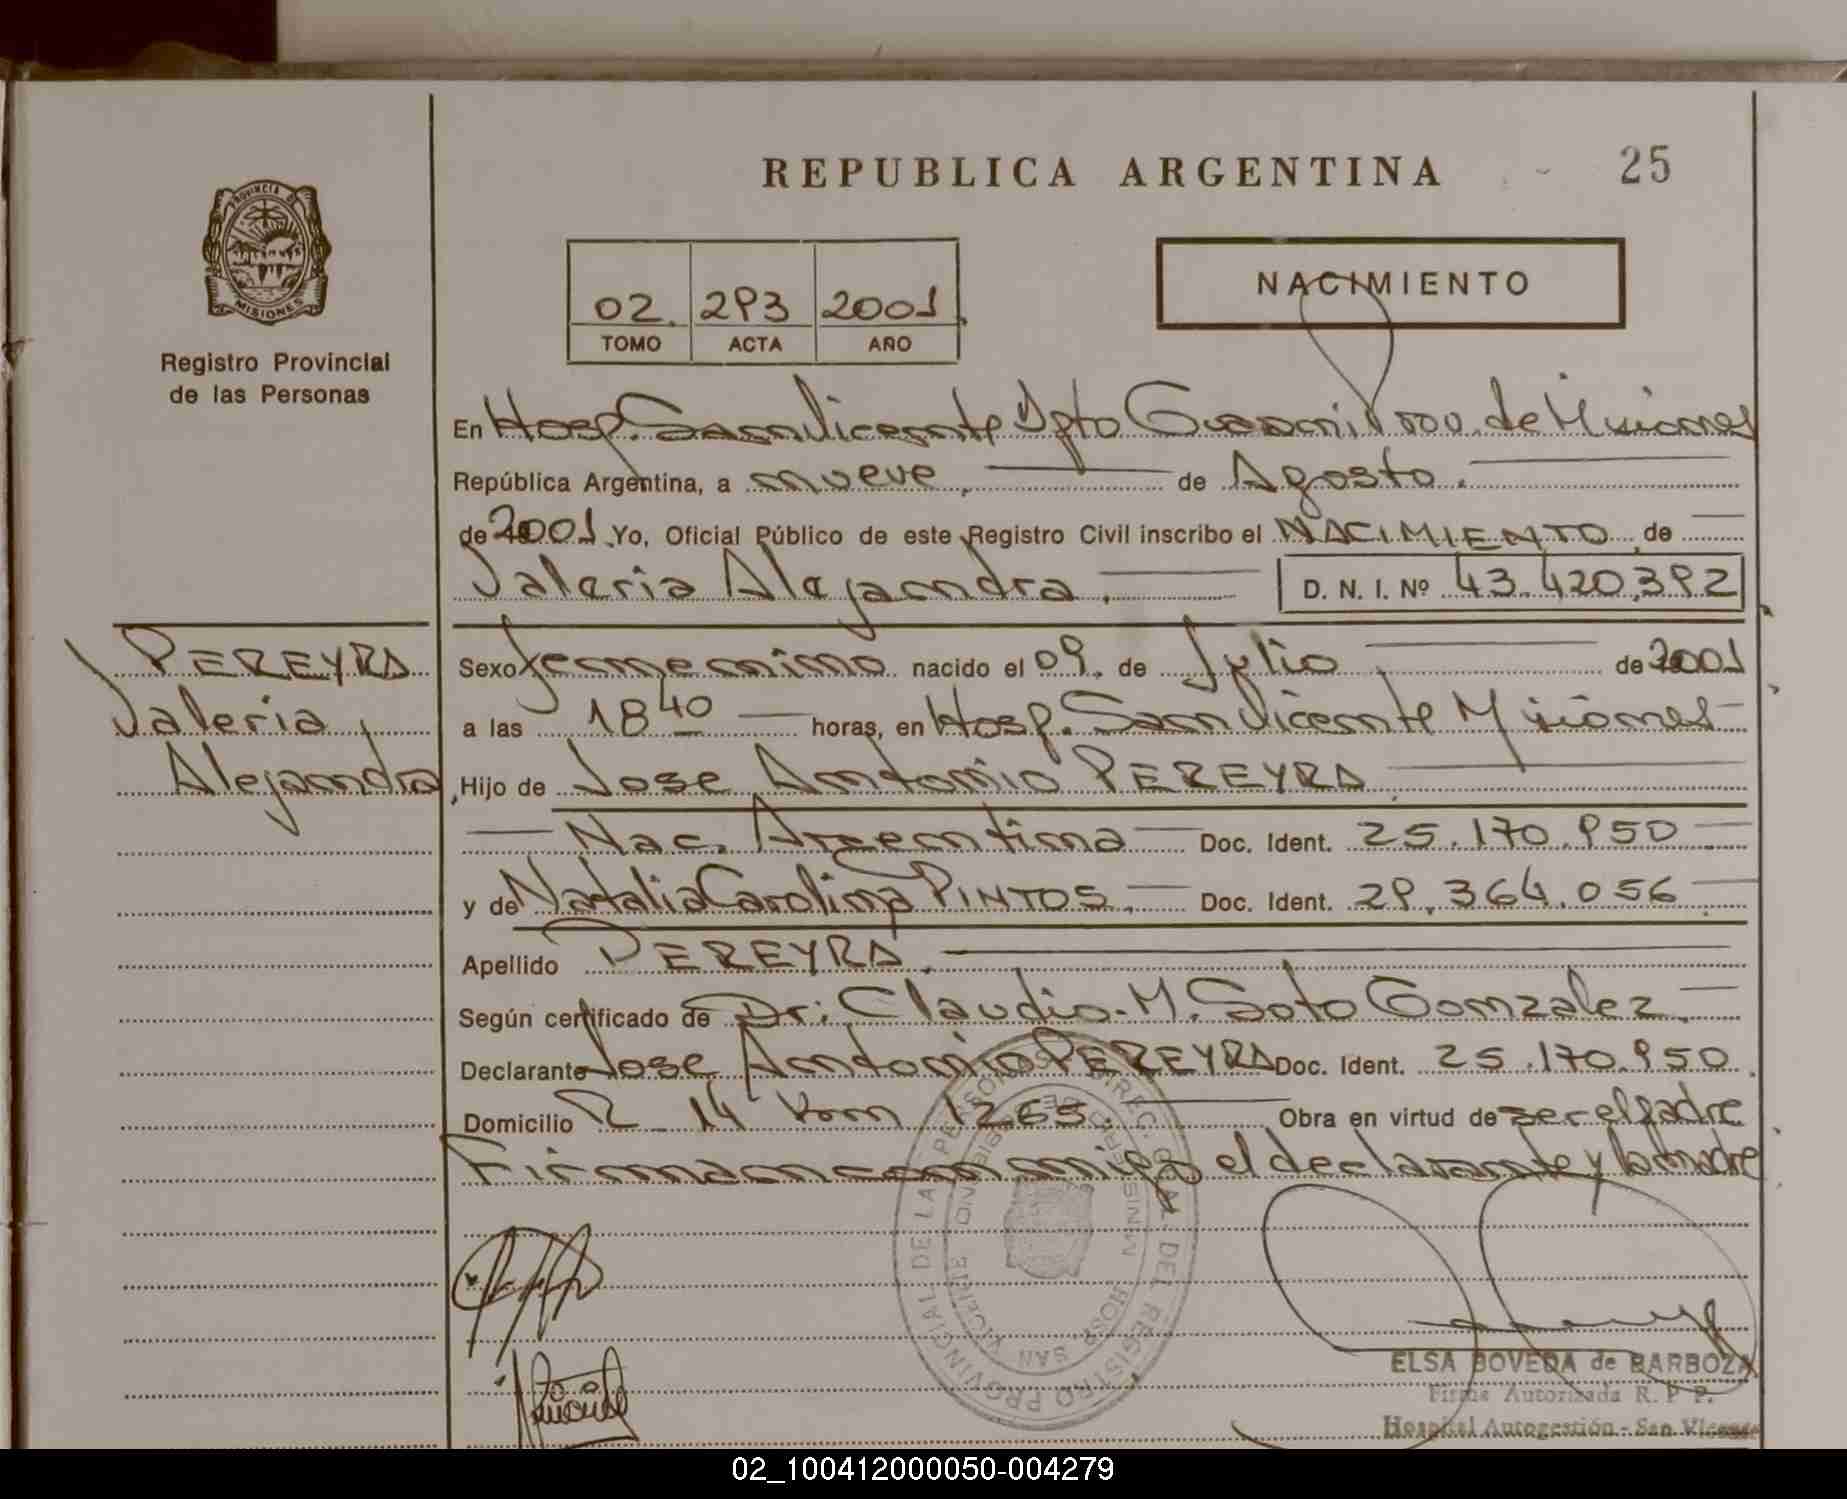 REPUBLICA ARGENTINA
25
PROVINCIA DE
MISIONES
Registro Provincial
de las Personas
02. 293 2001.
TOMO ACTA AÑO
NACIMIENTO
En Hosp. San Vicente Dpto Guarani Prov. de Misiones
República Argentina, a nueve, de Agosto.
de 2001. Yo, Oficial Público de este Registro Civil inscribo el NACIMIENTO de
Valeria Alejandra. D. N. I. Nº 43.420.392
PEREYRA
Valeria
Alejandra
Sexo femenino nacido el 09. de Julio de 2001
a las 18 40 horas, en Hosp. San Vicente Misiones
Hijo de Jose Antonio PEREYRA
Nac. Argentina Doc. Ident. 25.170.950
y de Natalia Carolina PINTOS. Doc. Ident. 29.364.056
Apellido PEREYRA.
Según certificado de Dr: Claudio. M. Soto Gonzalez.
Declarante Jose Antonio PEREYRA Doc. Ident. 25.170.950.
Domicilio R. 14 Km 1265. Obra en virtud de ser el padre
Firman conmigo el declarante y la madre
DIREC. GRAL. DEL REGISTRO PROVINCIAL DE LAS PERSONAS
HOSP SAN VICENTE
ELSA BOVEDA de BARBOZA
Firma Autorizada R. P. P.
Hospital Autogestión - San Vicente
02_100412000050-004279